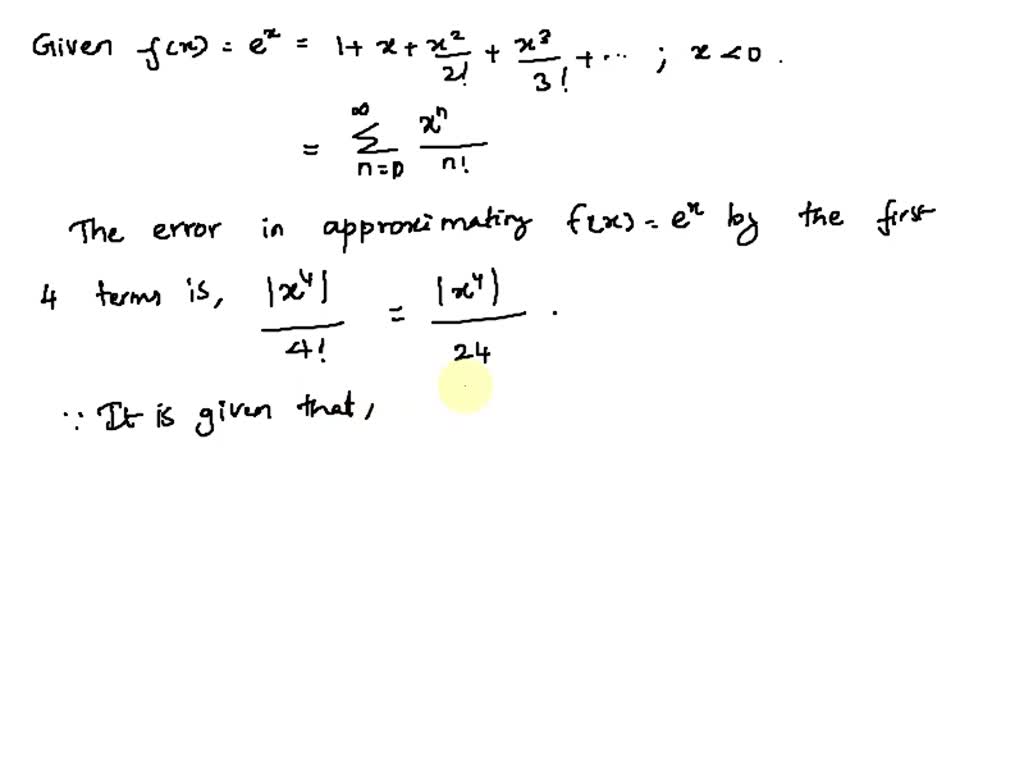 Given f(x) = eˣ = 1 + x + x²/2! + x³/3! + ... ; x < 0 .
= ∞ Σ n=0 xⁿ/n!
The error in approximating f(x) = eˣ by the first
4 terms is, |x⁴|/4! = |x⁴|/24 .
∵ It is given that,